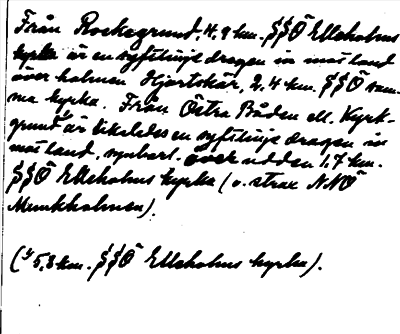 Från Rockegrund, 4,9 km. SSÖ Elleholms
kyrka är en syftlinje dragen in mot land
över holmen Hjortskär, 2,4 km. SSÖ sam-
ma kyrka. Från Östra Båden ell. Kyrk-
grund är likaledes en syftlinje dragen in
mot land, synbarl. över udden 1,7 km.
SSÖ Elleholms kyrka (v. strax NNÖ
Munkholmen).
(5,8 km. SSÖ Elleholms kyrka).